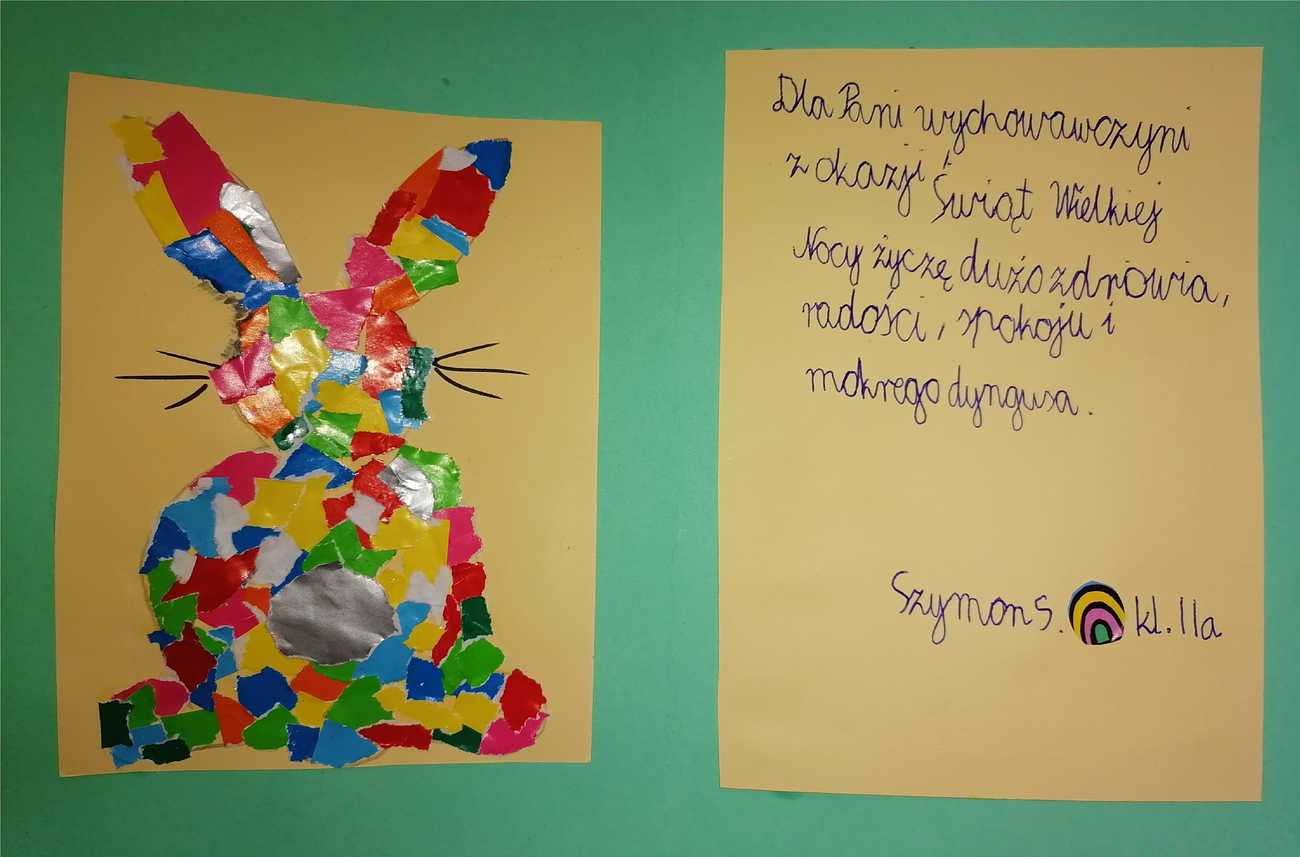 Dla Pani wychowawczyni
z okazji Świąt Wielkiej
Nocy życzę dużo zdrowia,
radości, spokoju i
mokrego dyngusa.
Szymon S. kl. IIa